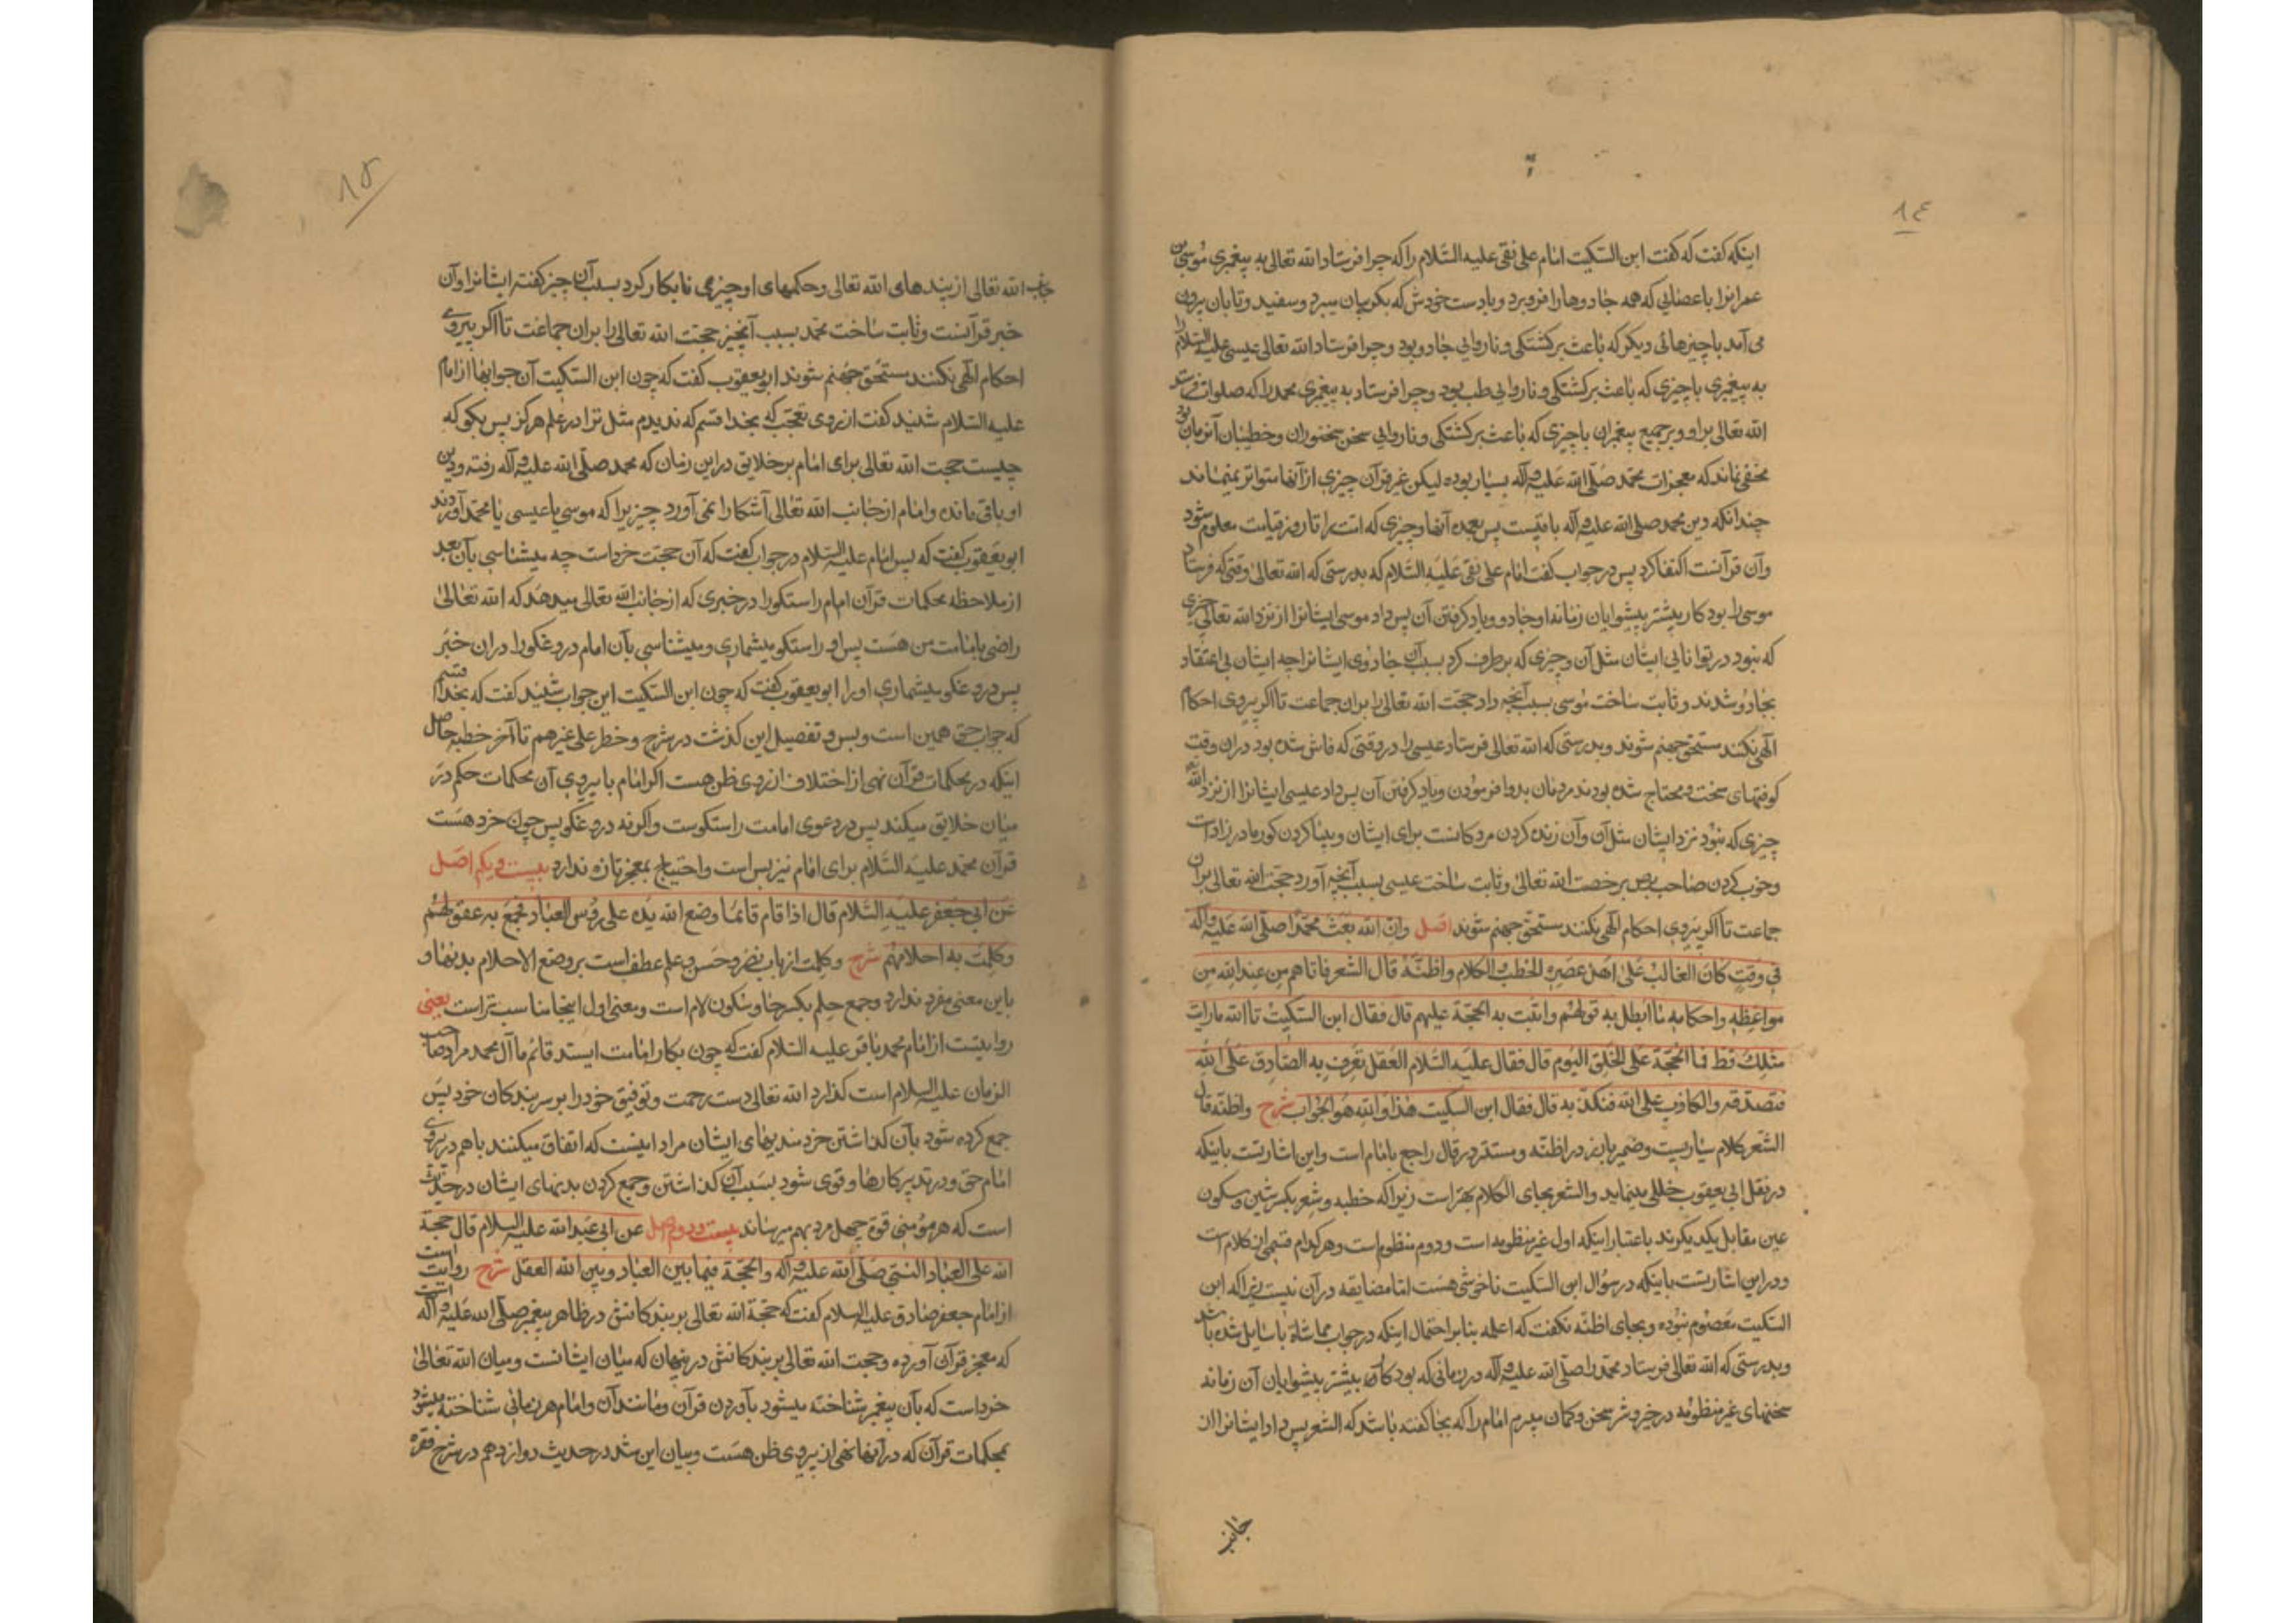 ۱۴
اینکه گفت که گفت ابن السکیت امام علی نقی علیه السّلام را که چرا فرستاد الله تعالی به پیغمبری موسی بن
عمرانرا با عصایی که همه جادوها را فرو برد و با دست خودش که بگریبان میبرد و سفید و تابان برون
می آمد با چیزهائی دیگر که باعث برگشتگی و ناروایی جادو بود و چرا فرستاد الله تعالی عیسی علیه السّلام را
به پیغمبری با چیزی که باعث برگشتگی و ناروایی طب بود و چرا فرستاد به پیغمبری محمد را که صلوات فرستد
الله تعالی برا و و بر جمیع پیغمبران با چیزی که باعث برگشتگی و ناروایی سخن سخنوران و خطیبان آنزمان بود
مخفی نماند که معجزات محمد صلّی الله علیه وآله بسیار بوده لیکن غیر قرآن چیزی از آنها متواتر نمیماند
چندانکه دین محمد صلی الله علیه وآله باقیست پس بعمده آنها و چیزی که امت را تا روز قیامت معلوم شود
وآن قرآنست اکتفا کرد پس در جواب گفت امام علی نقی علیه السّلام که بدرستی که الله تعالی وقتی که فرستاد
موسی را بود کار بیشتر پیشوایان زمانه او جادو و یاد گرفتن آن پس داد موسی ایشانرا از نزد الله تعالی چیزی
که نبود در توانایی ایشان مثل آن و چیزی که برطرف کرد بسبب آن جادوی ایشانرا چه ایشان بی اعتقاد
بجادو شدند و ثابت ساخت موسی بسبب آنچه داد حجت الله تعالی را بران جماعت تا اگر پیروی احکام
الهی نکنند مستحق جهنم شوند و بدرستی که الله تعالی فرستاد عیسی را در وقتی که فاش شده بود دران وقت
کوفتهای سخت و محتاج شده بودند مردمان بدوا فرمودن و یاد گرفتن آن پس داد عیسی ایشانرا از نزد الله
چیزی که نبود نزد ایشان مثل آن وآن زنده کردن مردگانست برای ایشان و بینا کردن کور مادرزادات
وخوب کردن صاحب برص برخصت الله تعالی و ثابت ساخت عیسی بسبب آنچه آورد حجت الله تعالی بران
جماعت تا اگر پیروی احکام الهی نکنند مستحق جهنم شوند اصل وانّ الله بعث محمّدا صلّی الله علیه وآله
فی وقت کان الغالب علی اهل عصره الخطب والکلام واظنّه قال الشعر فاتاهم من عند الله من
مواعظه واحکامه ما ابطل به قولهم واثبت به الحجّة علیهم قال فقال ابن السکیت تا الله ما رایت
مثلک قط فما الحجّة علی الخلق الیوم قال فقال علیه السّلام العقل تعرف به الصّادق علی الله
فتصدقه والکاذب علی الله فتکذبه قال فقال ابن السکیت هذا والله هو الجواب شرح واظنّه قال
الشعر کلام سیاریست و ضمیر بارز در اظنّه و مستتر در قال راجع بامام است واین اشارتست باینکه
در نقل ابی یعقوب خللی مینماید والشعر بجای الکلام بهتر است زیرا که خطبه و شعر بکسر شین وسکون
عین مقابل یکدیگرند باعتبار اینکه اول غیر منظومه است و دوم منظوم است و هر کدام قسمی از کلام است
و در این اشارتست باینکه در سؤال ابن السکیت ناخوشی هست اما مضایقه در آن نیست زیرا که ابن
السکیت معصوم نبوده و بجای اظنّه نگفت که اعلمه بنابر احتمال اینکه در جواب مماشاة با سایل شده باشد
و بدرستی که الله تعالی فرستاد محمّد را صلّی الله علیه وآله در زمانی که بود کار بیشتر پیشوایان آن زمانه
سخنهای غیر منظومه در خیر و شر سخن و گمان میبرم امام را که بجا گفته باشد که الشعر پس داد ایشانرا از
جانب
۱۵
جانب الله تعالی از پندهای الله تعالی و حکمهای او چیزی نابکار کرد بسبب آن چیز گفته ایشانرا وآن
خبر قرآنست و ثابت ساخت محمد بسبب آنچیز حجت الله تعالی را بران جماعت تا اگر پیروی
احکام الهی نکنند مستحق جهنم شوند ابو یعقوب گفت که چون ابن السکیت آن جوابها از امام
علیه السّلام شنید گفت از روی تعجب که بخدا قسم که ندیدم مثل ترا در علم هرگز پس بگو که
چیست حجت الله تعالی برای امام بر خلایق در این زمان که محمد صلّی الله علیه وآله رفته و دین
او باقی مانده و امام از جانب الله تعالی آشکارا نمی آورد چیزیرا که موسی یا عیسی یا محمد آوردند
ابو یعقوب گفت که پس امام علیه السّلام در جواب گفت که آن حجت خرداست چه میشناسی بآن بعد
از ملاحظه محکمات قرآن امام راستگو را در خبری که از جانب الله تعالی میدهد که الله تعالی
راضی بامامت من هست پس او راستگو میشماری و میشناسی بآن امام دروغگو را دران خبر
پس دروغگو میشماری او را ابو یعقوب گفت که چون ابن السکیت این جواب شنید گفت که بخدا قسم
که جواب حق همین است و بس و تفصیل این گذشت در شرح و خطر علی غیرهم تا آخر خطبه حاصل
اینکه در محکمات قرآن نهی از اختلاف از روی ظن هست اگر امام با پیروی آن محکمات حکم در
میان خلایق میکند پس در دعوی امامت راستگوست واگرنه دروغگو پس چون خرد هست
قرآن محمد علیه السّلام برای امام نیز بس است و احتیاج بمعجز تازه ندارد بیست و یکم اصل
عن ابی جعفر علیه السّلام قال اذا قام قائمنا وضع الله یده علی رؤس العباد فجمع به عقولهم
وکملت به احلامهم شرح وکملت از باب نصر و حسن و علم عطف است بر وضع الاحلام بدنها و
باین معنی مفرد ندارد و جمع حلم بکسر حا و سکون لام است و معنی اول اینجا مناسب تر است یعنی
روایتست از امام محمد باقر علیه السّلام گفت که چون بکار امامت ایستد قائم ما آل محمد مراد صاحب
الزمان علیه السلام است گذارد الله تعالی دست رحمت و توفیق خود را بر سر بندگان خود پس
جمع کرده شود بآن گذاشتن خردمندیهای ایشان مراد اینست که اتفاق میکنند باهم در پیروی
امام حق و در تدبیر کارها و قوی شود بسبب آن گذاشتن و جمع کردن بدنهای ایشان در حدیث
است که هر مؤمنی قوة چهل مرد بهم میرساند بیست و دوم اصل عن ابی عبد الله علیه السلام قال حجة
الله علی العباد النبی صلّی الله علیه وآله والحجّة فیما بین العباد وبین الله العقل شرح روایت است
از امام جعفر صادق علیه السلام گفت که حجّة الله تعالی بر بندگانش در ظاهر پیغمبر صلّی الله علیه وآله است
که معجز قرآن آورده و حجت الله تعالی بر بندگانش در پنهان که میان ایشانست و میان الله تعالی
خرداست که بآن پیغمبر شناخته میشود بآوردن قرآن و مانند آن و امام هر زمانی شناخته میشود
بمحکمات قرآن که در آنها نهی از پیروی ظن هست و بیان این شد در حدیث دوازدهم در شرح فقره